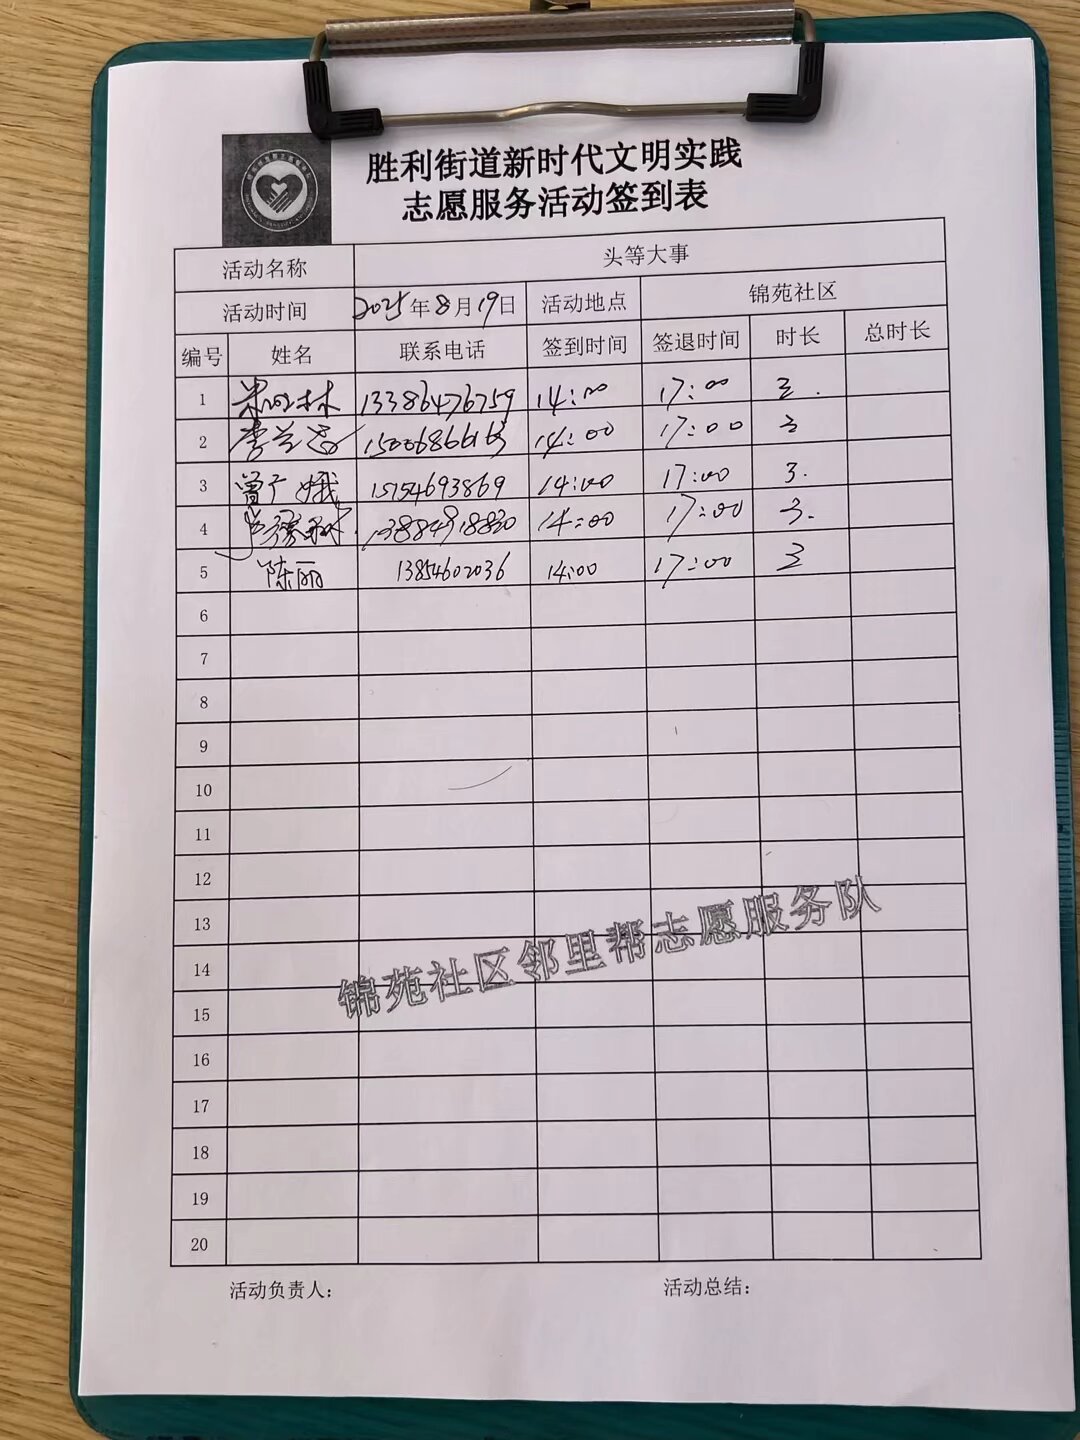 胜利街道新时代文明实践
志愿服务活动签到表
活动名称 头等大事
活动时间 2025年8月19日 活动地点 锦苑社区
编号 姓名 联系电话 签到时间 签退时间 时长 总时长
1 13386476759 14:00 17:00 3.
2 14:00 17:00 3
3 曾广娥 15754693869 14:00 17:00 3.
4 13884918830 14:00 17:00 3.
5 陈丽 13854602036 14:00 17:00 3
6
7
8
9
10
11
12
13
14
15
16
17
18
19
20
锦苑社区邻里帮志愿服务队
活动负责人: 活动总结: